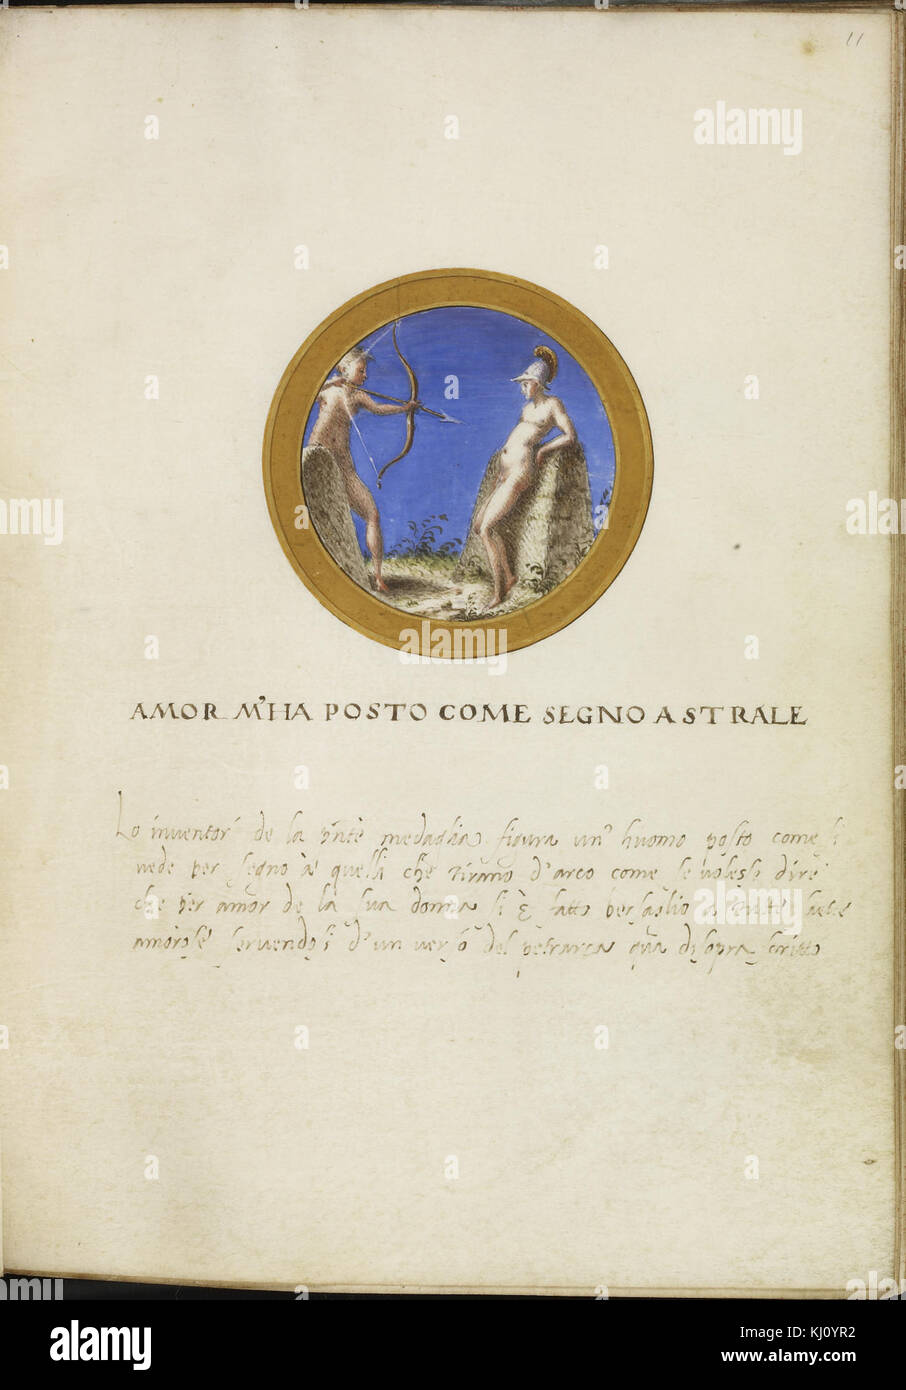 11
AMOR M'HA POSTO COME SEGNO A STRALE
Lo inventor de la pñte medaglia figura un' huomo posto come si
vede per segno à quelli che tirano d'arco come se volesse dire
che per amor de la sua donna si è fatto bersaglio a tutte saete
amorose servendosi d'un verso del petrarca qua disopra scritto
alamy
Image ID: KJ0YR2
www.alamy.com